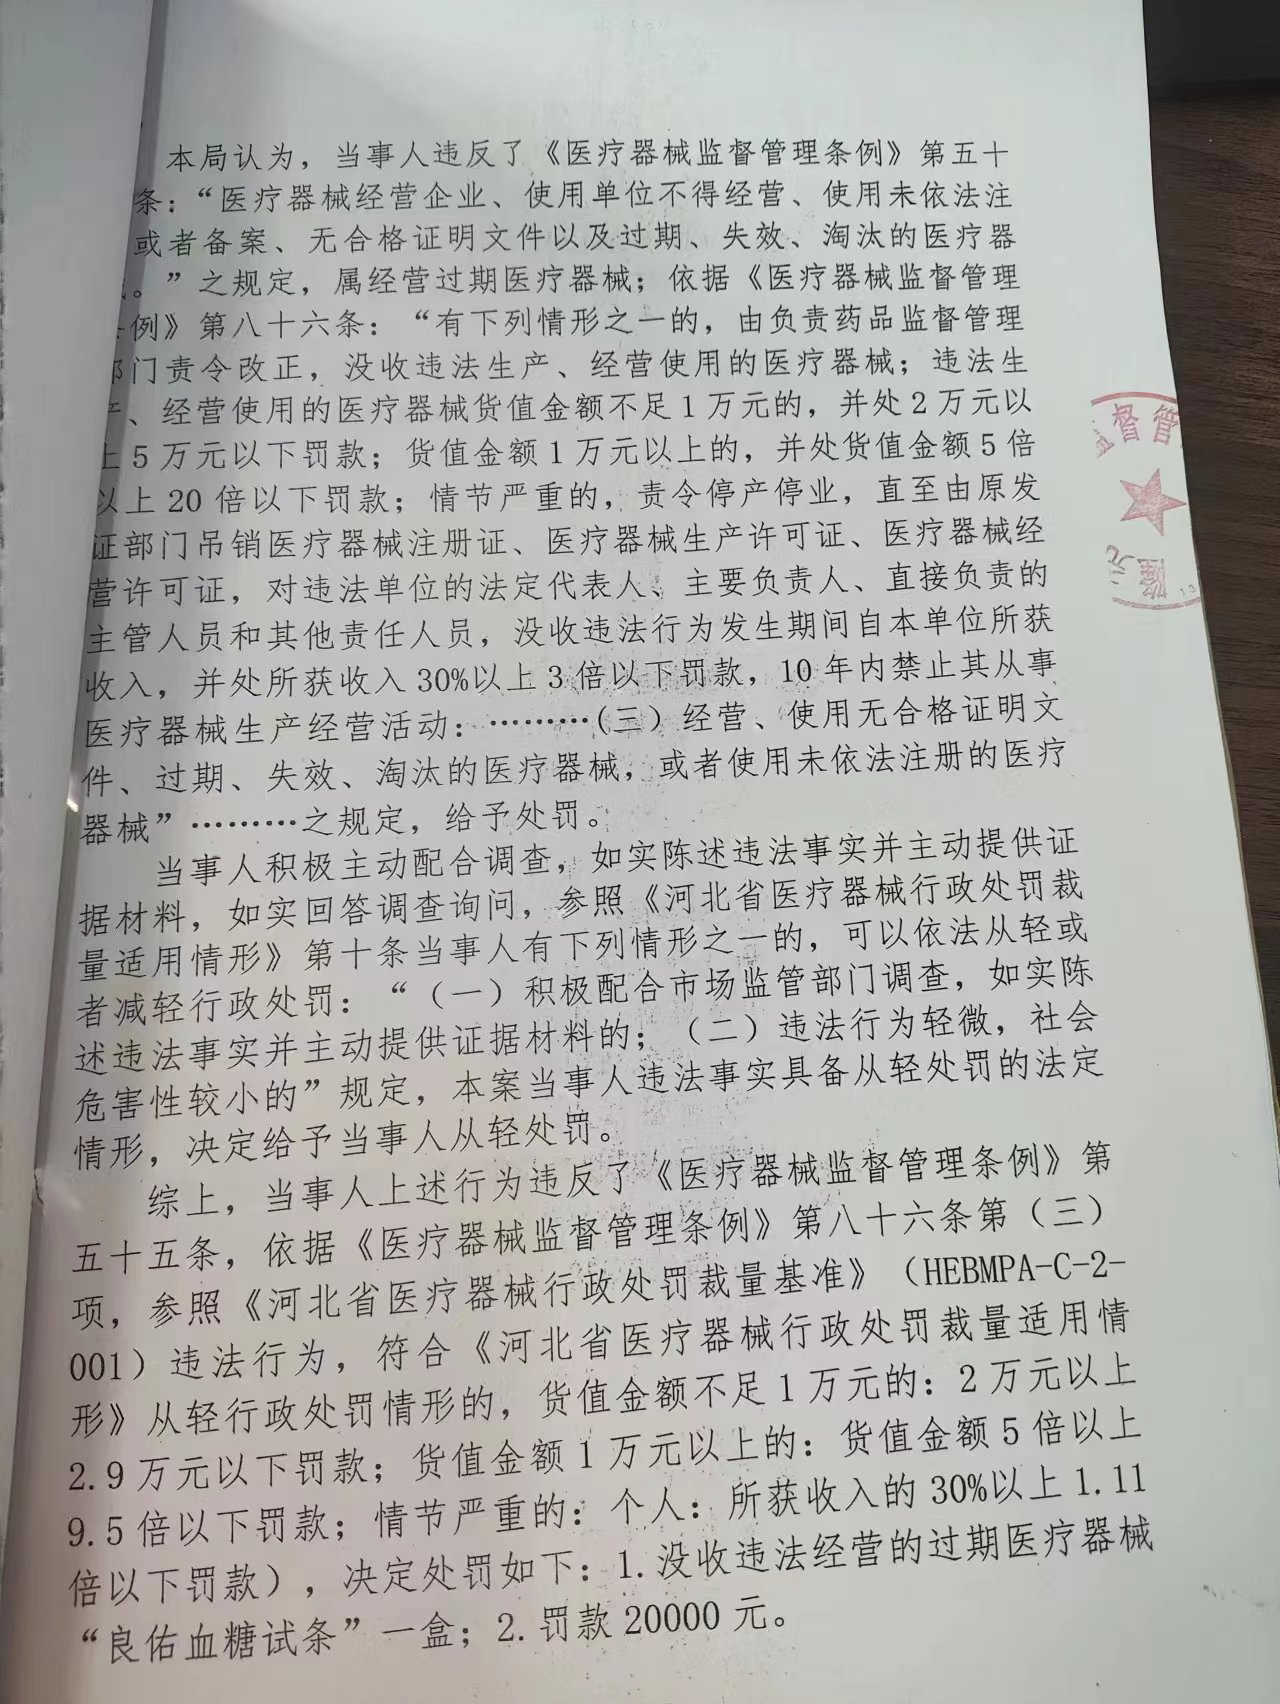 本局认为，当事人违反了《医疗器械监督管理条例》第五十
条：“医疗器械经营企业、使用单位不得经营、使用未依法注
或者备案、无合格证明文件以及过期、失效、淘汰的医疗器
。”之规定，属经营过期医疗器械；依据《医疗器械监督管理
条例》第八十六条：“有下列情形之一的，由负责药品监督管理
部门责令改正，没收违法生产、经营使用的医疗器械；违法生
产、经营使用的医疗器械货值金额不足1万元的，并处2万元以
上5万元以下罚款；货值金额1万元以上的，并处货值金额5倍
以上20倍以下罚款；情节严重的，责令停产停业，直至由原发
证部门吊销医疗器械注册证、医疗器械生产许可证、医疗器械经
营许可证，对违法单位的法定代表人、主要负责人、直接负责的
主管人员和其他责任人员，没收违法行为发生期间自本单位所获
收入，并处所获收入30%以上3倍以下罚款，10年内禁止其从事
医疗器械生产经营活动：………(三）经营、使用无合格证明文
件、过期、失效、淘汰的医疗器械，或者使用未依法注册的医疗
器械”………之规定，给予处罚。
当事人积极主动配合调查，如实陈述违法事实并主动提供证
据材料，如实回答调查询问，参照《河北省医疗器械行政处罚裁
量适用情形》第十条当事人有下列情形之一的，可以依法从轻或
者减轻行政处罚：“（一）积极配合市场监管部门调查，如实陈
述违法事实并主动提供证据材料的；（二）违法行为轻微，社会
危害性较小的”规定，本案当事人违法事实具备从轻处罚的法定
情形，决定给予当事人从轻处罚。
综上，当事人上述行为违反了《医疗器械监督管理条例》第
五十五条，依据《医疗器械监督管理条例》第八十六条第（三）
项，参照《河北省医疗器械行政处罚裁量基准》（HEBMPA-C-2-
001）违法行为，符合《河北省医疗器械行政处罚裁量适用情
形》从轻行政处罚情形的，货值金额不足1万元的：2万元以上
2.9万元以下罚款；货值金额1万元以上的：货值金额5倍以上
9.5倍以下罚款；情节严重的：个人：所获收入的30%以上1.11
倍以下罚款），决定处罚如下：1.没收违法经营的过期医疗器械
“良佑血糖试条”一盒；2.罚款20000元。
督管
隆
13